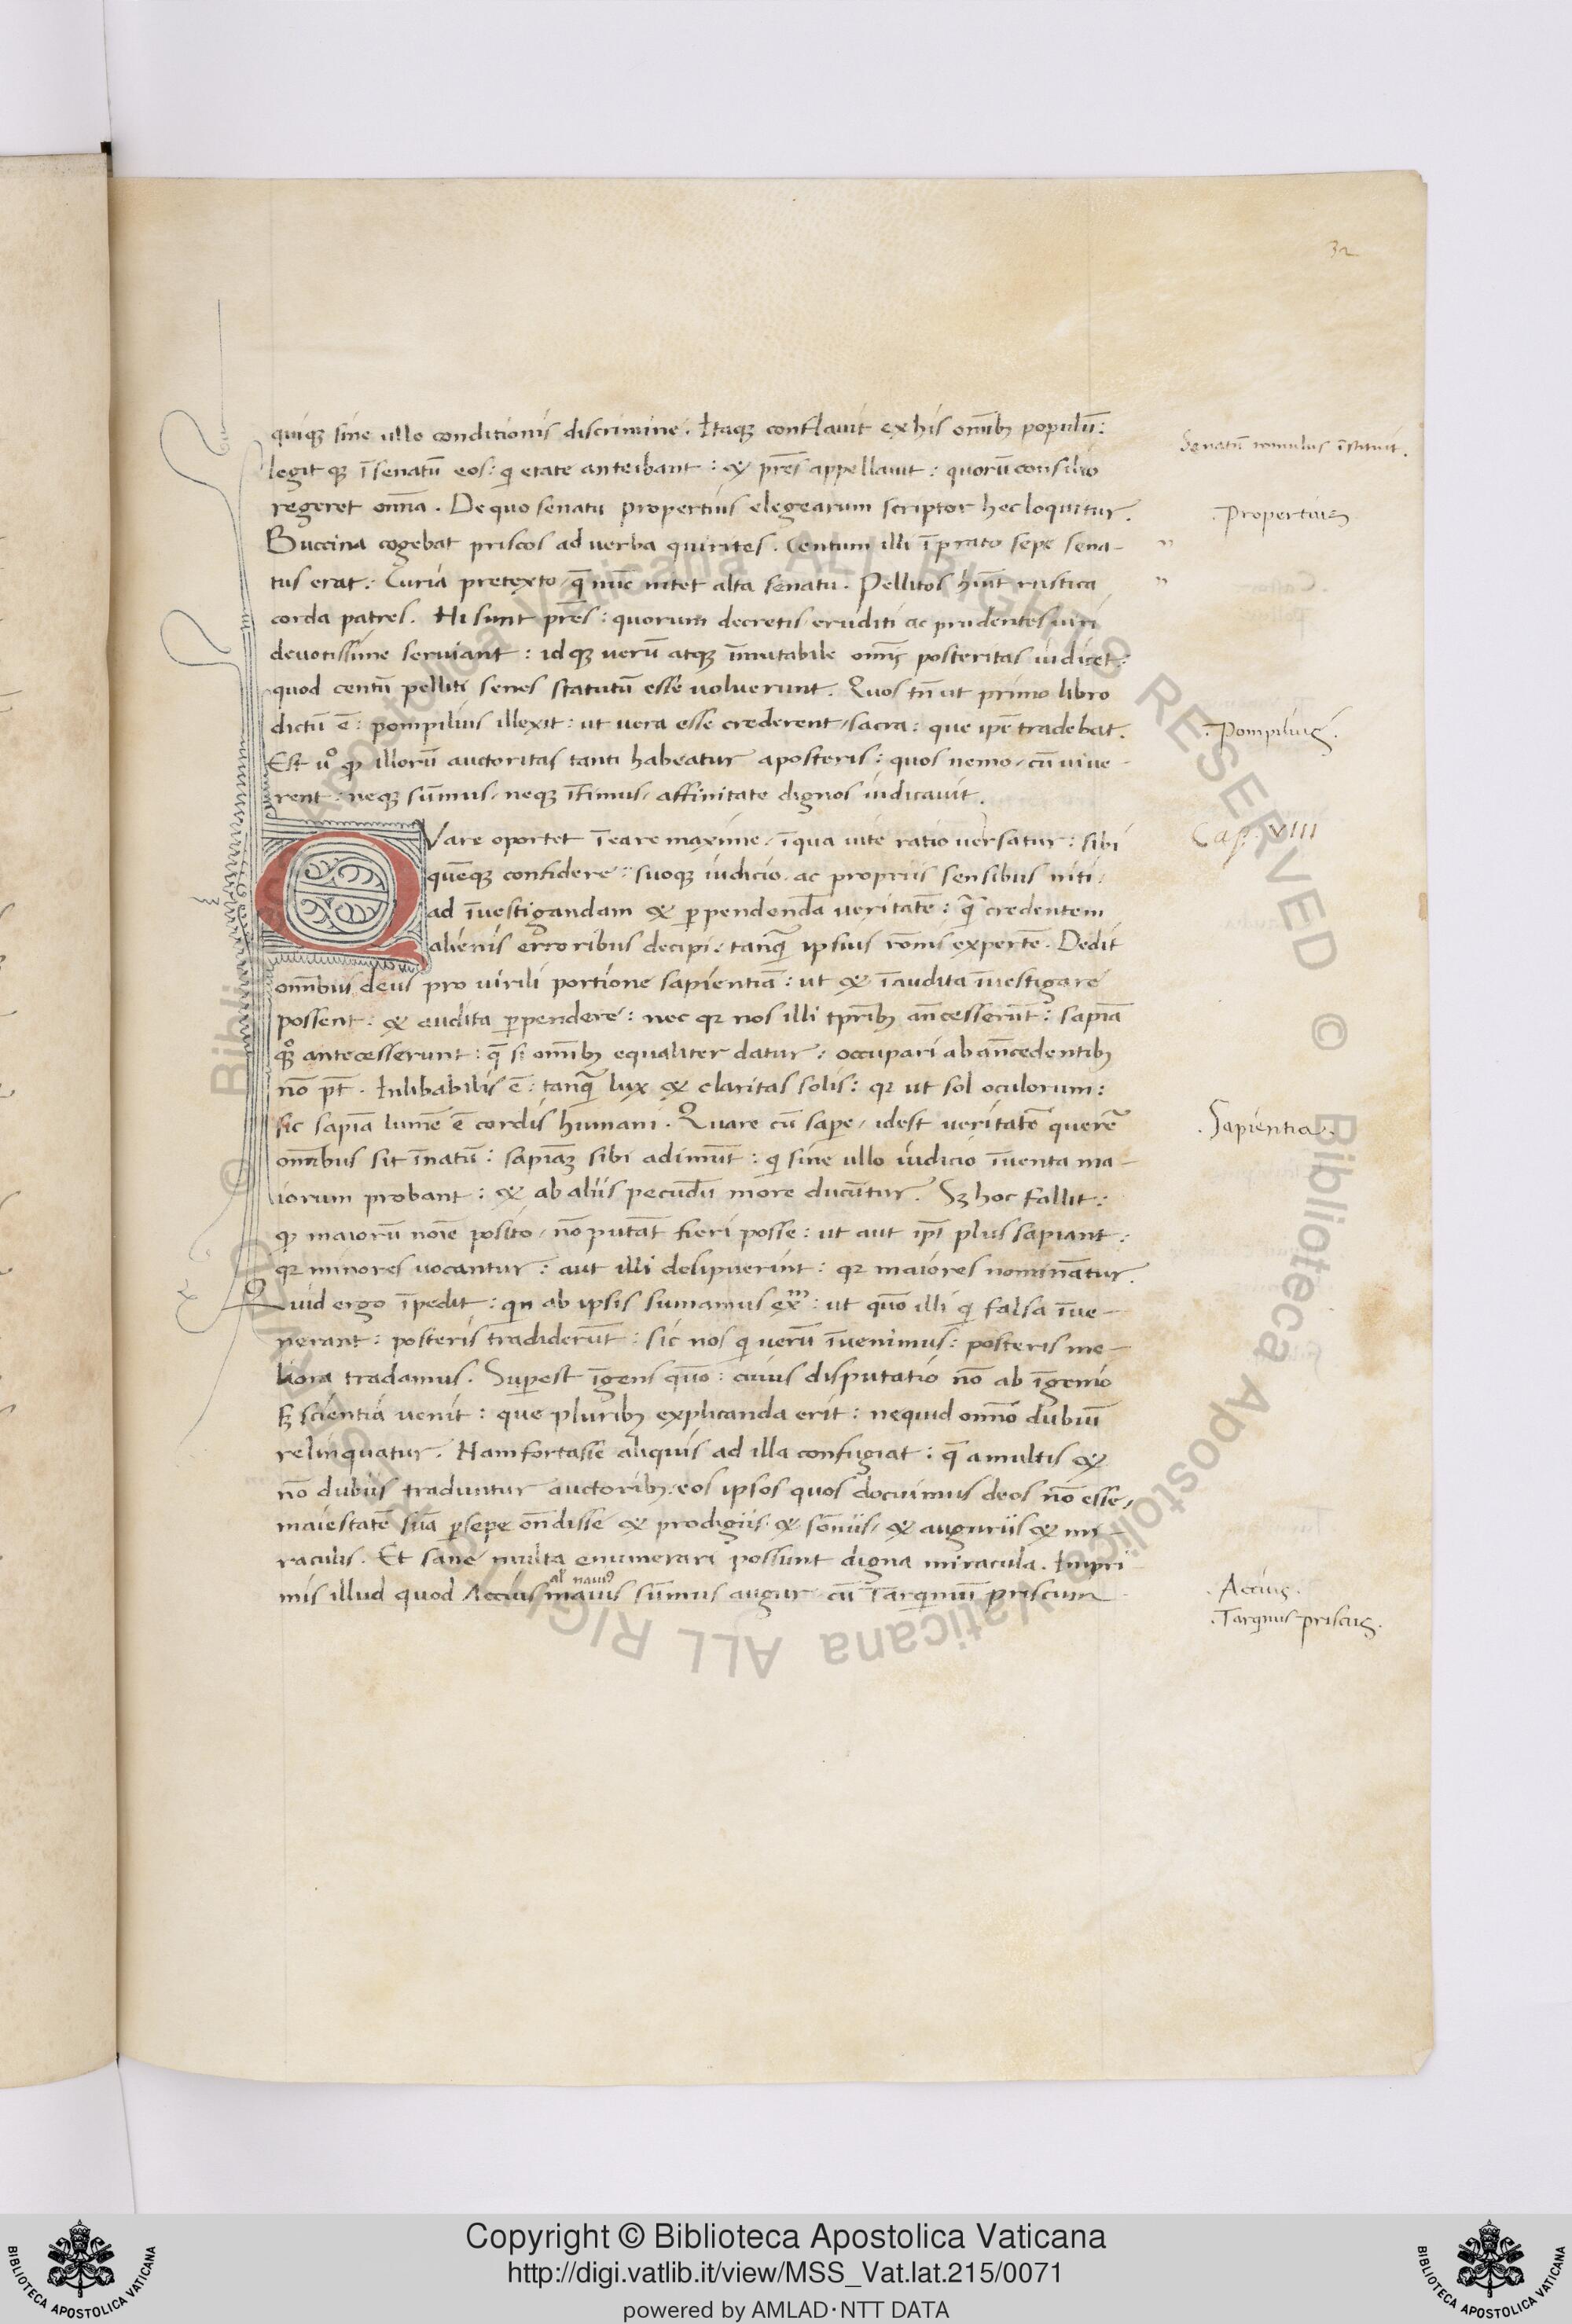 32
quiqꝫ sine ullo conditionis discrimine. Itaqꝫ conflauit ex his om̄ibꝫ populū:
legit qꝫ ī senatū eos: qͥ etate anteibant: & pr̄es appellauit: quorū consilio
regeret om̄ia. De quo senatu propertius elegearum scriptor hec loquitur.
Buccina cogebat priscos ad uerba quirites. Centum illi ī prato sepe sena-
tus erat. Curia pretexto, q̄ nūc nitet alta senatu. Pellitos hūit rustica
corda patres. Hi sunt pr̄es: quorum decretis eruditi ac prudentes uiri
deuotissime seruiant: id qꝫ uerū atqꝫ īmutabile om̄is posteritas iudicet:
quod centū pelliti senes statutū esse uoluerunt. Quos tn̄ ut primo libro
dictū ē: pompilius illexit: ut uera esse crederent, sacra: que ip̄e tradebat.
Est uͦ qͥ illorū auctoritas tanti habeatur a posteris: quos nemo, cū uiue-
rent: neqꝫ sūmus, neqꝫ īfimus, affinitate dignos iudicauit.
QVare oportet ī ea re maxime, ī qua uite ratio uersatur: sibi
quēqꝫ confidere: suoqꝫ iudicio, ac propriis sensibus niti:
ad īuestigandam & ꝑpendendā ueritatē: qͣ̄ credentem
alienis erroribus decipi: tanqͣ̄ ipsius rōnis expertē. Dedit
om̄ibus deus pro uirili portione sapientiā: ut & īaudita īuestigare
possent: & audita ꝑpendere: nec qꝛ nos illi tp̄ribꝫ an̄cesserūt: sapīa
qꝫͦ antecesserunt: q̄ si om̄ibꝫ equaliter datur: occupari ab an̄cedentibꝫ
nō pt̄. Inlibabilis ē: tanqͣ̄ lux & claritas solis: qꝛ ut sol oculorum:
sic sapīa lumē ē cordis humani. Quare cū sapere, idest ueritatē querere
om̄ibus sit īnatū: sapiāꝫ sibi adimūt: qͥ sine ullo iudicio īuenta ma-
iorum probant: & ab aliis pecudū more ducūtur. Sꝫ hoc fallit:
qͥ maiorū noīe posito, nō putāt fieri posse: ut aut ip̄i plus sapiant:
qꝛ minores uocantur: aut illi desipuerint: qꝛ maiores nominātur.
Quid ergo īpedit: qn ab ipsis sumamus exᵐ: ut quō illi qͥ falsa īue-
nerant: posteris tradiderūt: sic nos qͥ uerū īuenimus: posteris me-
liora tradamus. Suꝑest īgens quō: cuius disputatio nō ab īgenio
sꝫ scientia uenit: que pluribꝫ explicanda erit: nequid om̄io dubiū
relinquatur. Nam fortasse aliquis ad illa confugiat: q̄ a multis &
nō dubiis traduntur auctoribꝫ: eos ipsos quos docuimus deos nō esse,
maiestatē suā ꝑsepe on̄disse & prodigiis & sōniis, & auguriis & mi-
raculis. Et sane multa enumerari possunt digna miracula. Impri
al nauiꝰ
mis illud quod Accius mauius sūmus augur cū Tarqͥniū priscum
Senatū romulus īstituit.
.Propertius
.Pompilius.
Cap. VIII
.Sapientia.
.Accius.
.Tarqͥnus priscus.
Copyright © Biblioteca Apostolica Vaticana
http://digi.vatlib.it/view/MSS_Vat.lat.215/0071
powered by AMLAD·NTT DATA
BIBLIOTECA APOSTOLICA VATICANA
BIBLIOTECA APOSTOLICA VATICANA
© Biblioteca Apostolica Vaticana ALL RIGHTS RESERVED © Biblioteca Apostolica Vaticana ALL RIGHTS RESERVED